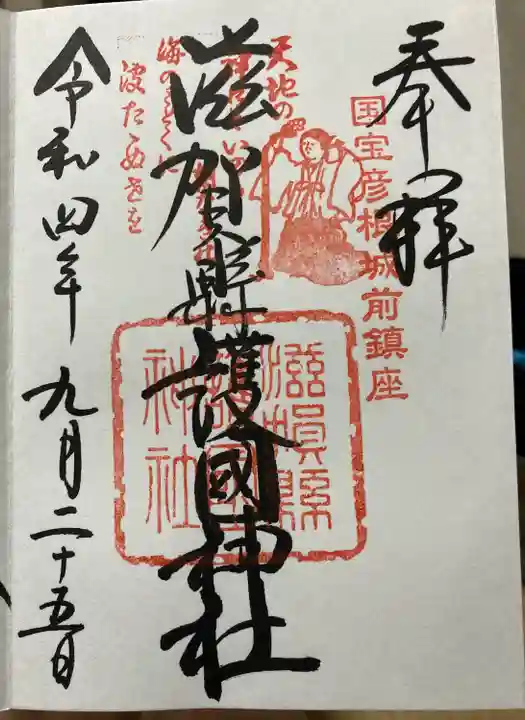 奉拝
国宝彦根城前鎮座
天地の
滋賀縣護國神社
滋賀縣護國神社
令和四年九月二十五日